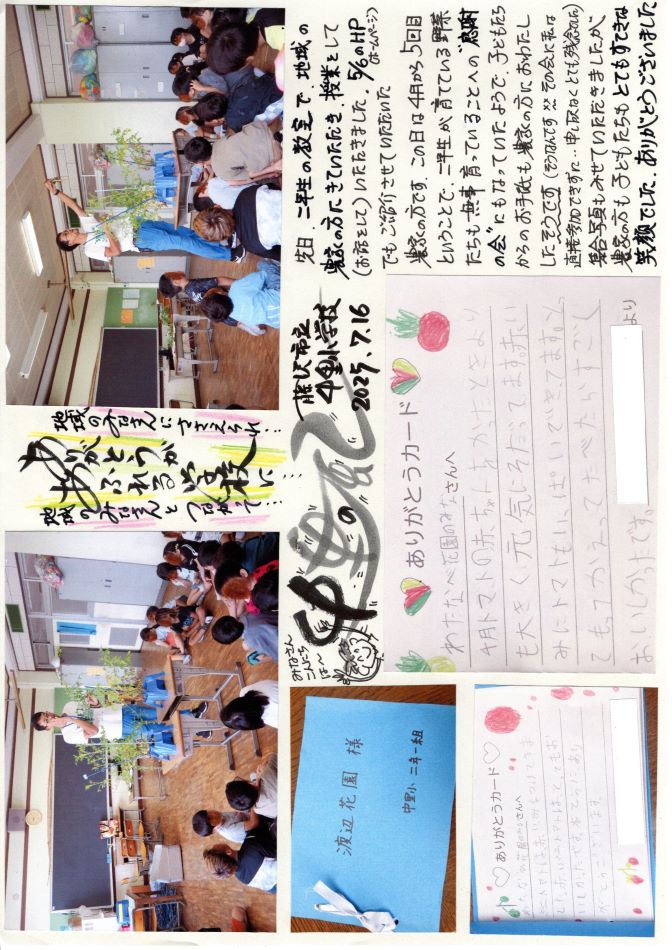 地域のみなさんにささえられ…
ありがとうが
あふれる学校に…
地域のみなさんとつながって…
みなさん
こんにち
は〜
"中里"の"記"
藤沢市立
中里小学校
2025.7.16
先日、二年生の教室で、地域の
農家の方にきていただき、授業として
(お話をして)いただきました。5/6のHP
(ホームページ)
でもご紹介させていただいた
農家の方です。この日は4月から5回目
ということで、二年生が育てている野菜
たちも無事育っていることへの"感謝
の会"にもなっていたようで、子どもたち
からのお手紙も農家の方におわたし
したそうです(そうなんです!!その会に私は
集合写真もみせていただきましたが、
農家の方も子どもたちもとてもすてきな
笑顔でした。ありがとうございました
渡辺花園 様
中里小 二年一組
ありがとうカード
わたなべ花園のみなさんへ
も大きく元気にそだってます。赤い
みにトマトもいっぱいできてます。と
おいしかったです。
より
ありがとうカード